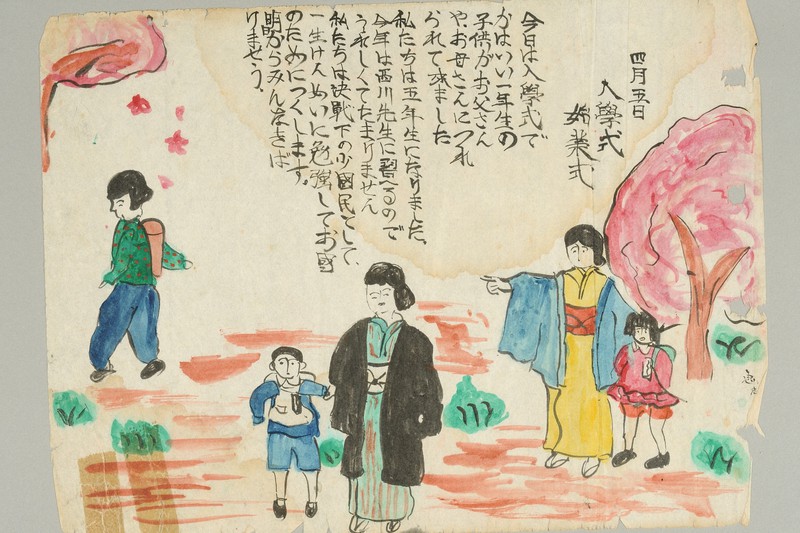 四月五日
入學式
始業式
今日は入學式で
かはいい一年生の
子供がお父さん
や、お母さんにつれ
られて来ました
私たちは五年生になりました。
今年は西川先生に習へるので
うれしくてたまりません
私たちは決戦下の少國民として、
一生けんめいに勉強してお國
のためにつくします。
明からみんなきば
りませう。